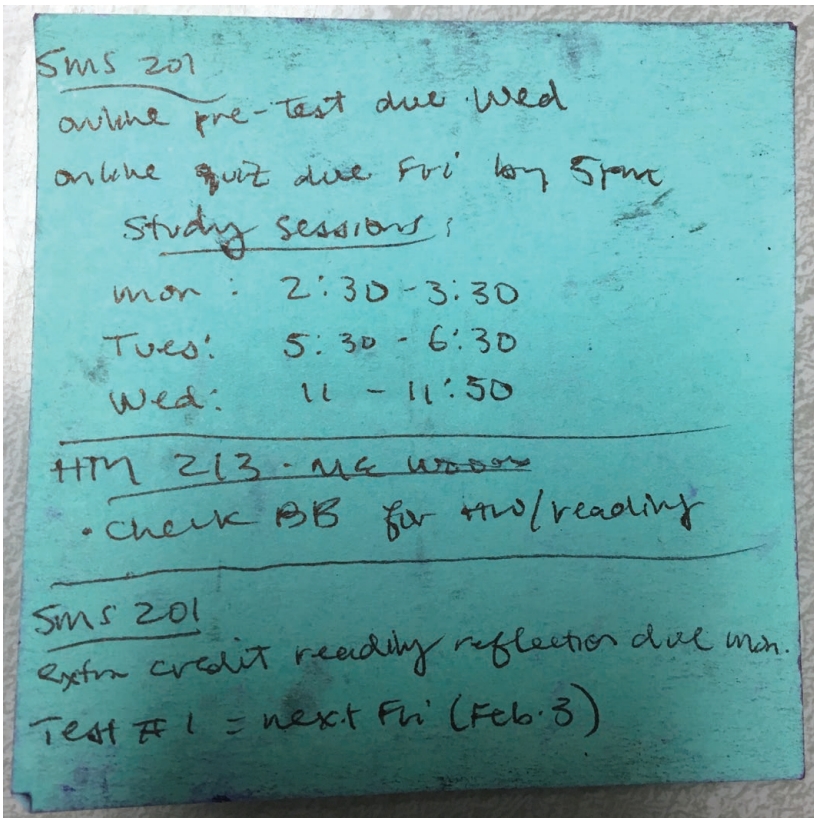 SMS 201
online pre-test due Wed
online quiz due Fri by 5pm
Study Sessions:
mon: 2:30-3:30
Tues: 5:30-6:30
Wed: 11-11:50
HTM 213 -
• Check BB for HW/reading
SMS 201
extra credit reading reflection due mon.
Test #1 = next Fri (Feb. 3)